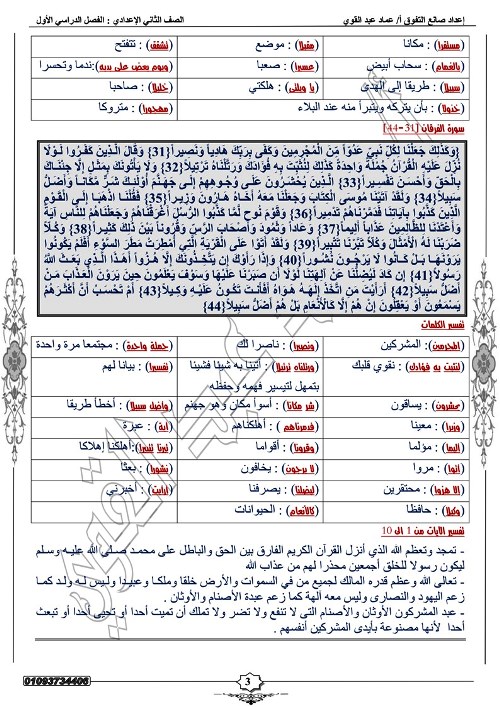 إعداد صانع التفوق أ/ عماد عبد القوي الصف الثاني الإعدادي : الفصل الدراسي الأول
(مستقرا) : مكانا (مقيلا) : موضع (تشقق) : تتفتح
(بالغمام) : سحاب أبيض (عسيرا) : صعبا (ويوم يعض على يديه): ندما وتحسرا
(سبيلا) : طريقا إلى الهدى (يا ويلتى) : هلكتي (خليلا) : صاحبا
(خذولا) : بأن يتركه ويتبرأ منه عند البلاء (مهجورا) : متروكا
سورة الفرقان [31-44]
{وَكَذَلِكَ جَعَلْنَا لِكُلِّ نَبِيٍّ عَدُوّاً مِّنَ الْمُجْرِمِينَ وَكَفَى بِرَبِّكَ هَادِياً وَنَصِيراً{31} وَقَالَ الَّذِينَ كَفَرُوا لَوْلَا
نُزِّلَ عَلَيْهِ الْقُرْآنُ جُمْلَةً وَاحِدَةً كَذَلِكَ لِنُثَبِّتَ بِهِ فُؤَادَكَ وَرَتَّلْنَاهُ تَرْتِيلاً{32} وَلَا يَأْتُونَكَ بِمَثَلٍ إِلَّا جِئْنَاكَ
بِالْحَقِّ وَأَحْسَنَ تَفْسِيراً{33} الَّذِينَ يُحْشَرُونَ عَلَى وُجُوهِهِمْ إِلَى جَهَنَّمَ أُوْلَئِكَ شَرٌّ مَّكَاناً وَأَضَلُّ
سَبِيلاً{34} وَلَقَدْ آتَيْنَا مُوسَى الْكِتَابَ وَجَعَلْنَا مَعَهُ أَخَاهُ هَارُونَ وَزِيراً{35} فَقُلْنَا اذْهَبَا إِلَى الْقَوْمِ
الَّذِينَ كَذَّبُوا بِآيَاتِنَا فَدَمَّرْنَاهُمْ تَدْمِيراً{36} وَقَوْمَ نُوحٍ لَّمَّا كَذَّبُوا الرُّسُلَ أَغْرَقْنَاهُمْ وَجَعَلْنَاهُمْ لِلنَّاسِ آيَةً
وَأَعْتَدْنَا لِلظَّالِمِينَ عَذَاباً أَلِيماً{37} وَعَاداً وَثَمُودَ وَأَصْحَابَ الرَّسِّ وَقُرُوناً بَيْنَ ذَلِكَ كَثِيراً{38} وَكُلّاً
ضَرَبْنَا لَهُ الْأَمْثَالَ وَكُلّاً تَبَّرْنَا تَتْبِيراً{39} وَلَقَدْ أَتَوْا عَلَى الْقَرْيَةِ الَّتِي أُمْطِرَتْ مَطَرَ السَّوْءِ أَفَلَمْ يَكُونُوا
يَرَوْنَهَا بَلْ كَانُوا لَا يَرْجُونَ نُشُوراً{40} وَإِذَا رَأَوْكَ إِن يَتَّخِذُونَكَ إِلَّا هُزُواً أَهَذَا الَّذِي بَعَثَ اللَّهُ
رَسُولاً{41} إِن كَادَ لَيُضِلُّنَا عَنْ آلِهَتِنَا لَوْلَا أَن صَبَرْنَا عَلَيْهَا وَسَوْفَ يَعْلَمُونَ حِينَ يَرَوْنَ الْعَذَابَ مَنْ
أَضَلُّ سَبِيلاً{42} أَرَأَيْتَ مَنِ اتَّخَذَ إِلَهَهُ هَوَاهُ أَفَأَنتَ تَكُونُ عَلَيْهِ وَكِيلاً{43} أَمْ تَحْسَبُ أَنَّ أَكْثَرَهُمْ
يَسْمَعُونَ أَوْ يَعْقِلُونَ إِنْ هُمْ إِلَّا كَالْأَنْعَامِ بَلْ هُمْ أَضَلُّ سَبِيلاً{44}
تفسير الكلمات
(المجرمين) : المشركين (ونصيرا) : ناصرا لك (جملة واحدة) : مجتمعا مرة واحدة
(لنثبت به فؤادك) : نقوي قلبك (ورتلناه ترتيلا) : أتينا به شيئا فشيئا (تفسيرا) : بيانا لهم
بتمهل لتيسير فهمه وحفظه
(يحشرون) : يساقون (شر مكانا) : أسوأ مكان وهو جهنم (وأضل سبيلا) : أخطأ طريقا
(وزيرا) : معينا (فدمرناهم) : أهلكناهم (آية) : عبرة
(أليما) : مؤلما (وقرونا) : أقواما (تبرنا تتبيرا) :أهلكنا إهلاكا
(أتوا) : مروا (لا يرجون) : يخافون (نشورا) : بعثا
(إلا هزوا) : محتقرين (ليضلنا) : يصرفنا (أرأيت) : أخبرني
(وكيلا) : حافظا (كالأنعام) : الحيوانات
تفسير الآيات من 1 إلى 10
- تمجد وتعظم الله الذي أنزل القرآن الكريم الفارق بين الحق والباطل على محمد صلى الله عليه وسلم
ليكون رسولا للخلق أجمعين محذرا لهم من عذاب الله
- تعالى الله وعظم قدره المالك لجميع من في السموات والأرض خلقا وملكا وعبيدا وليس له ولد كما
زعم اليهود والنصارى وليس معه آلهة كما زعم عبدة الأصنام والأوثان .
- عبد المشركون الأوثان والأصنام التى لا تنفع ولا تضر ولا تملك أن تميت أحدا أو تحيى أحدا أو تبعث
أحدا لأنها مصنوعة بأيدى المشركين أنفسهم .
3
01093734400